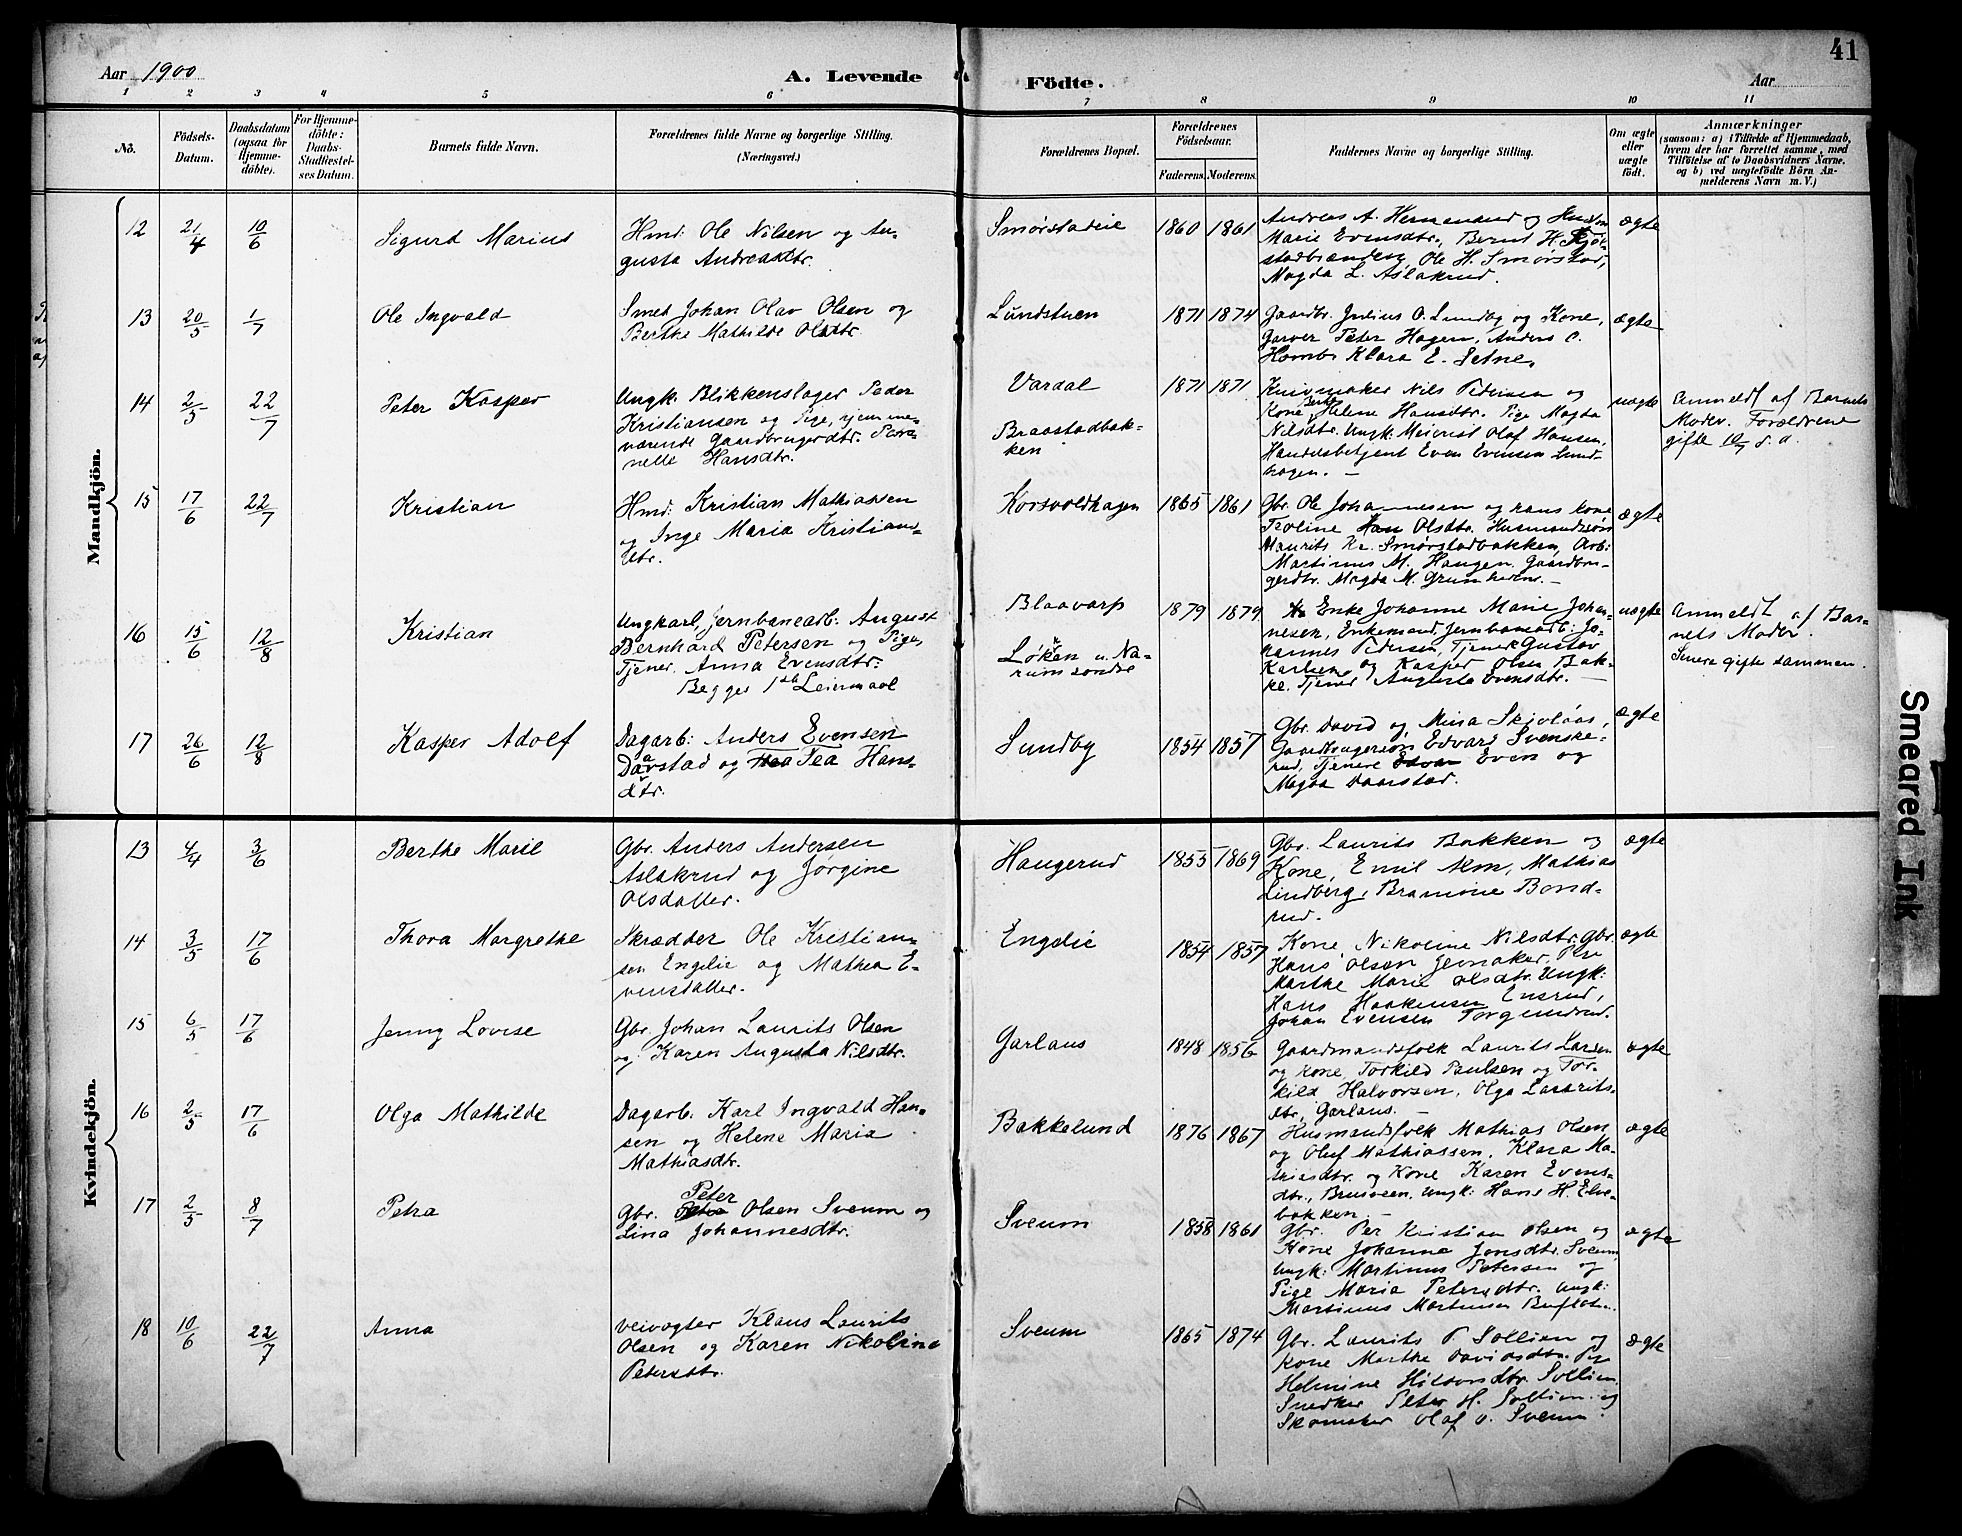 41
Aar 1900
A. Levende
Födte.
Aar
1 2 3 4 5 6 7 8 9 10 11
No.
Födsels-
Datum.
Daabsdatum
(ogsaa for
Hjemme-
døbte).
For Hjemme-
døbte:
Daabs-
Stadfæstel-
ses Datum.
Barnets fulde Navn.
Forældrenes fulde Navne og borgerlige Stilling.
(Næringsvei.)
Forældrenes Bopæl.
Forældrenes
Födselsaar.
Faderens. Moderens.
Faddernes Navne og borgerlige Stilling.
Om ægte
eller
uægte
født.
Anmærkninger
(saasom: a) i Tilfælde af Hjemmedaab,
hvem der har forrettet samme, med
Tilföielse af to Daabsvidners Navne.
og b) ved uægtefödte Börn An-
melderens Navn m. V.)
Mandkjön.
12 21/4 10/6 Sigurd Marius
Hmd: Ole Nilsen og Au-
gusta Andreasdtr.
Smørstadeie 1860 1861
Andreas A. Hermanrud og
Marie Evensdtr., Bernt H.
stadbrænden, Ole H. Smørstad,
Magda L. Aslakrud.
ægte
13 20/5 1/7 Ole Ingvald
Smed Johan Olav Olsen og
Berthe Mathilde Olsdtr.
Lundstuen 1871 1874
Gaardbr. Julius O. Lundby og Kone,
Garver Peter Hagen, Anders C.
Klara E. Setne.
ægte
14 2/5 22/7 Peter Kasper
Ungk. Blikkenslager Peder
Kristiansen og Pige, hjemme-
værende Gaardbrugerdtr. Per-
nelle Hansdtr.
Vardal
Braastadbak-
ken
1871 1871
Knivmaker Nils Pedersen og
Kone Berthe Helene Hansdtr. Pige Magda
Nilsdtr. Ungk: Meierist Olaf Hansen,
Handelsbetjent Even Evensen Lund-
hagen. —
uægte
Anmeldt af Barnets
Moder. Forældrene
gifte 10/7 s. a.
15 17/6 22/7 Kristian
Hmd: Kristian Mathiassen
og Inge Maria Kristians-
dtr.
Korsvoldhagen 1865 1861
Gbr. Ole Johannesen og hans kone
Troline Olsdtr. Husmandssøn
Maurits Kr. Smørstadbakken, Arb:
Martinus M. Haugen. Gaardbru-
gerdtr. Magda M. —
ægte
16 15/6 12/8 Kristian
Ungkarl, jernbanearb: August
Bernhard Petersen og Pige,
Tjener Anna Evensdtr.
Begges 1ste Leiermaal
Blaavarp
Løkken u. Na-
rum søndre
1879 1879
Enke Johanne Marie Johan-
nesen, Enkemand, Jernbanearb: Jo-
hannes Pedersen, Tjener Gustav
Karlsen og Kasper Olsen Bak-
ke. Tjener Augusta Evensdtr. —
uægte
Anmeldt af Bar-
nets Moder.
Senere gifte sammen.
17 26/6 12/8 Kasper Adolf
Dagarb: Anders Evensen
Daarstad og Tea Hans-
dtr.
Sundby 1854 1857
Gbr. David og Mina
Gaardbrugersøn Edvard Svenske-
rud, Tjenere Even og
Magda Daarstad.
ægte
Kvindekjön.
13 4/4 3/6 Berthe Marie
Gbr. Anders Andersen
Aslakrud og Jørgine
Olsdatter.
Haugerud 1855 1869
Gbr. Laurits Bakken og
Kone, Emil Alm, Mathias
Lindberg, Bramine Bond-
rud.
ægte
14 3/5 17/6 Thora Margrethe
Skrædder Ole Kristian-
sen Engelie og Mathea E-
vensdatter.
Engelie 1854 1857
Kone Nikoline Nilsdtr. Gbr.
Hans Olsen Jevnaker, Pige
Marthe Marie Olsdtr. Ungk:
Hans Haakensen Ensrud,
Johan Evensen
ægte
15 6/5 17/6 Jenny Lovise
Gbr. Johan Laurits Olsen
og Karen Augusta Nilsdtr.
Garlaus 1848 1856
Gaardmandsfolk Laurits Larsen
og kone, Torkild Paulsen og Tor-
kild Halvorsen, Olga Laurits-
dtr, Garlaus. —
ægte
16 2/5 17/6 Olga Mathilde
Dagarb. Karl Ingvald Han-
sen og Helene Maria
Mathiasdtr.
Bakkelund 1876 1867
Husmandsfolk Mathias Olsen
og Oluf Mathiassen, Klara Ma-
thiasdtr. og Kone Karen Evens-
dtr, Brusveen, Ungk: Hans H. Elve-
bakken. —
ægte
17 2/5 8/7 Petra
Gbr. Peter Olsen Sveum og
Lina Johannesdtr.
Sveum 1858 1861
Gbr. Per Kristian Olsen og
Kone Johanne Jonsdtr. Sveum,
Ungk: Martinus Petersen og
Pige Maria Petersdtr. Ungk:
Martinus Martinsen
ægte
18 10/6 22/7 Anna
Veivogter Klaus Laurits
Olsen og Karen Nikoline
Petersdtr.
Sveum 1865 1874
Gbr. Laurits P. Sollien og
Kone Marthe Davidsdtr. Pige
Helmine Sollien.
Snedker Peter H. Sollien og
Skomaker Olaf O. Sveum.
ægte
Smeared Ink